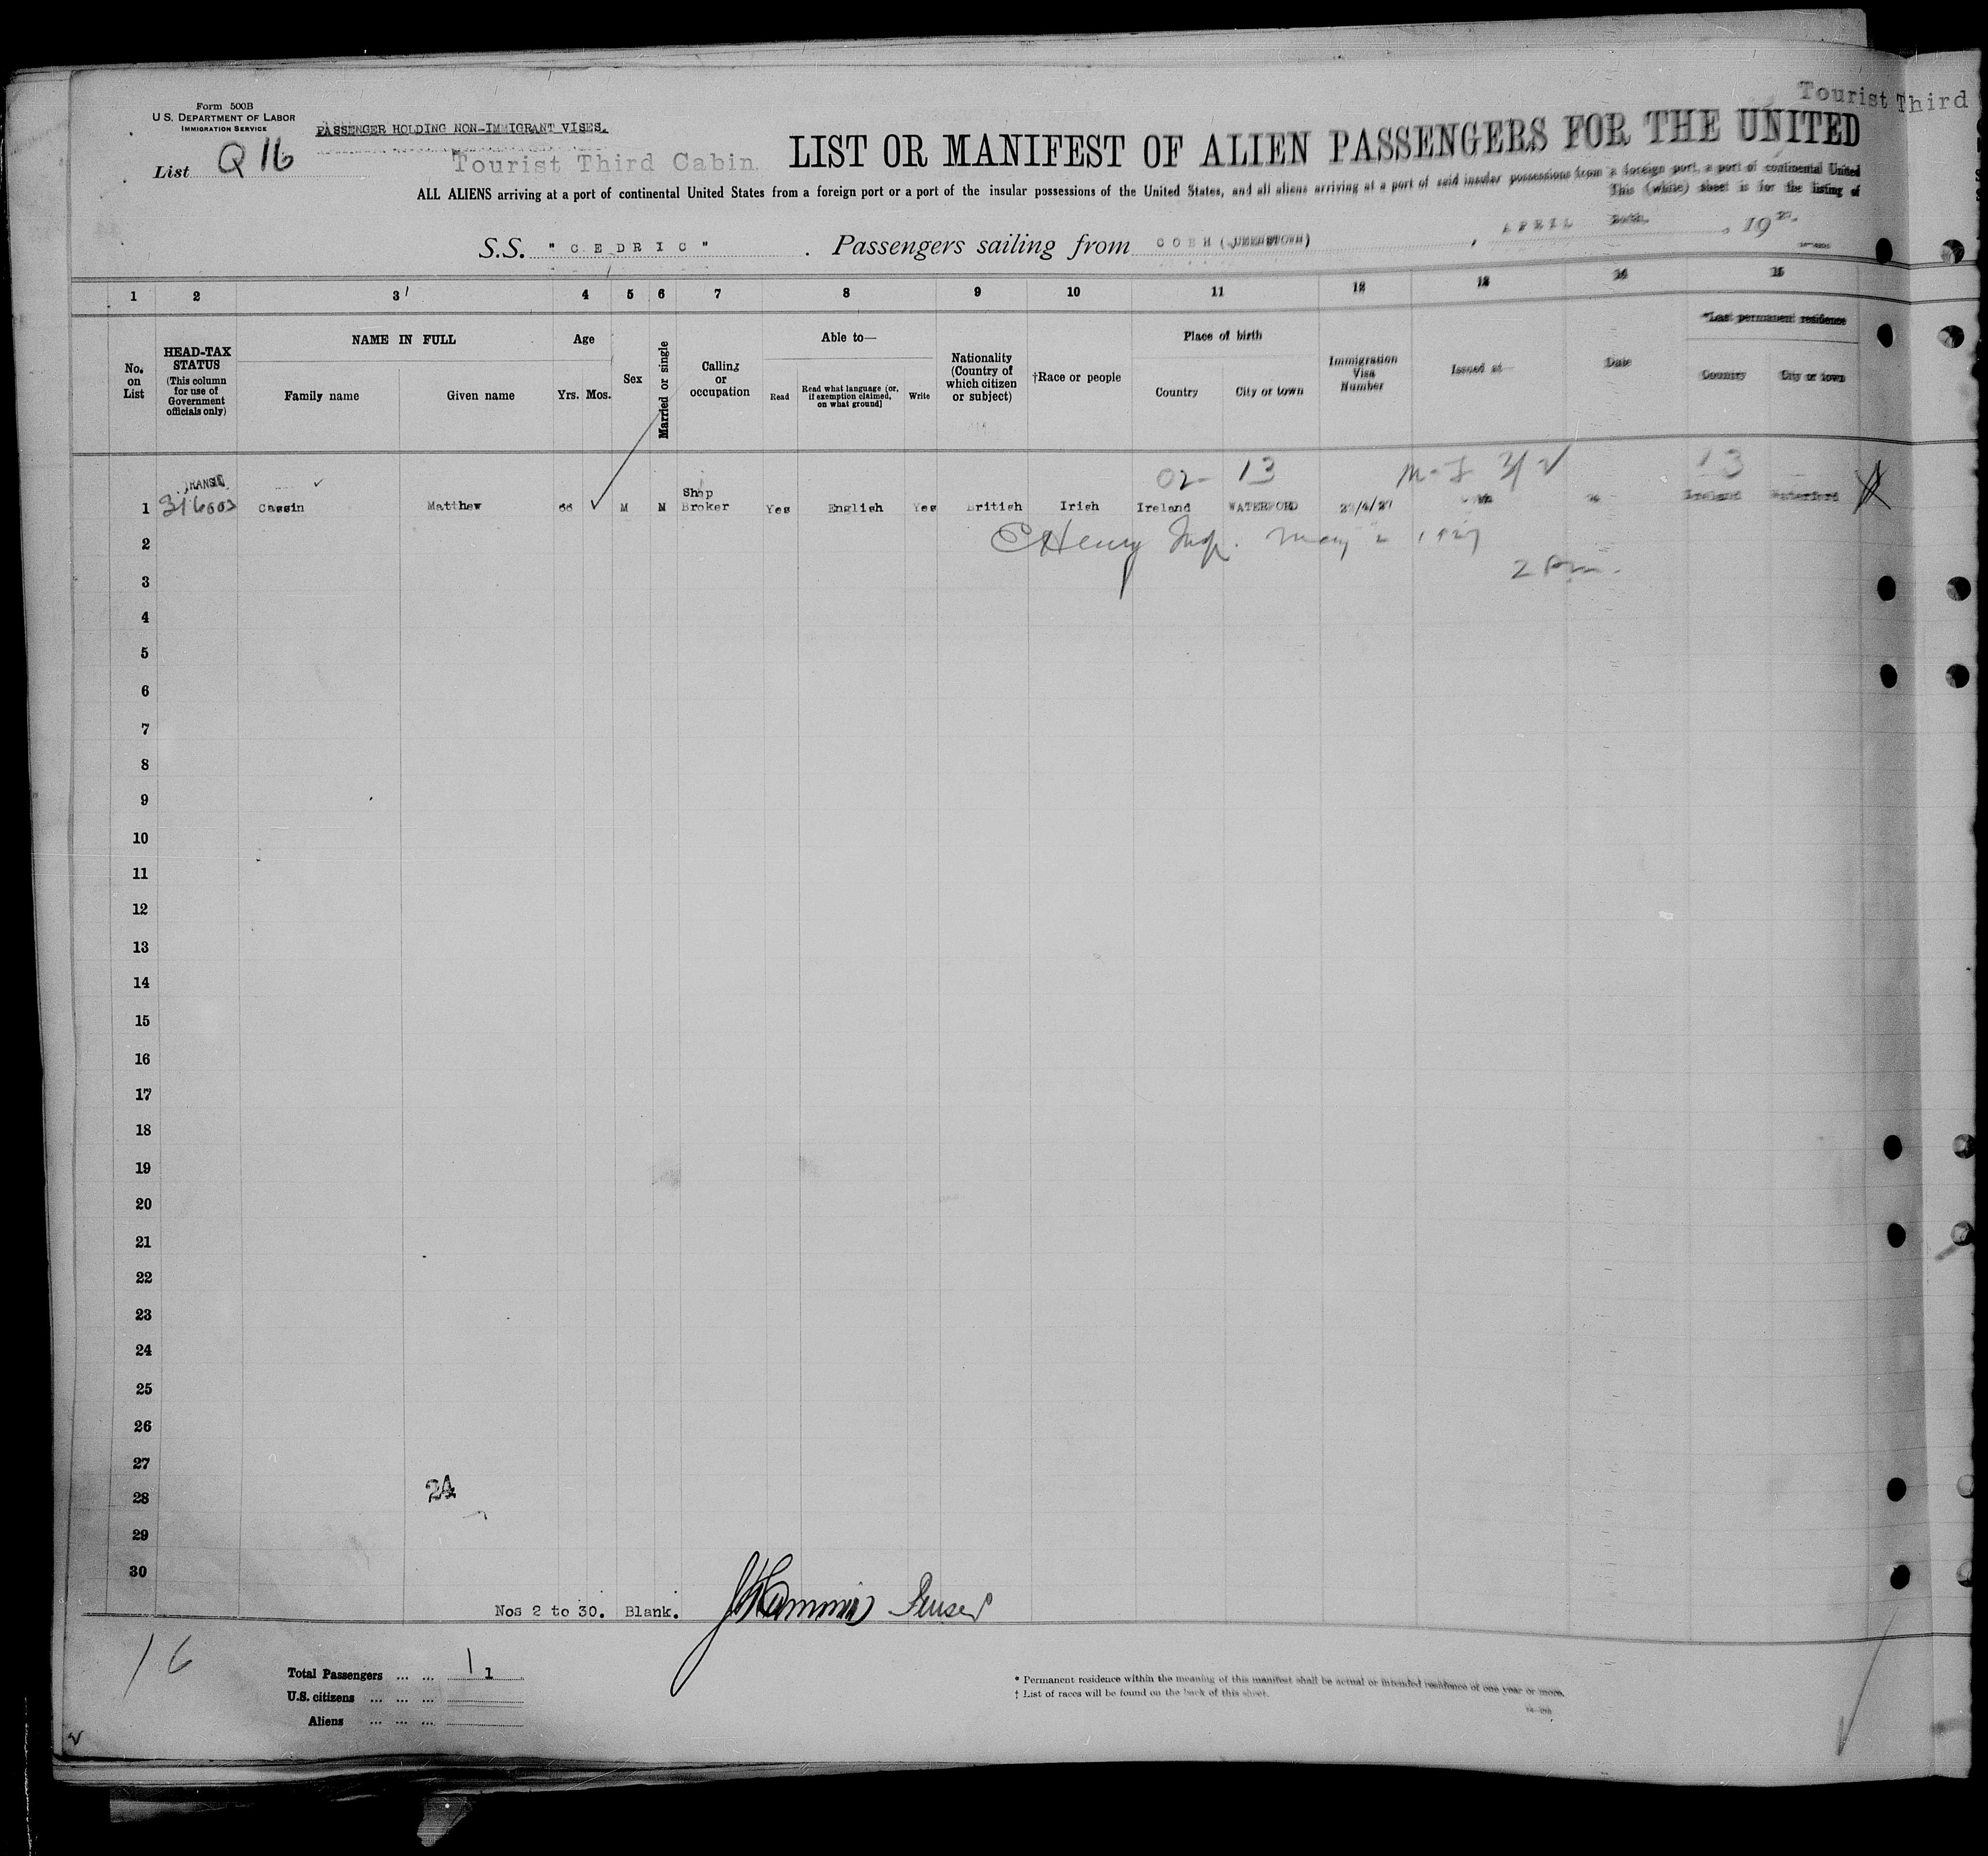 Tourist Third
Form 500B
U.S. DEPARTMENT OF LABOR
IMMIGRATION SERVICE
PASSENGER HOLDING NON-IMMIGRANT VISES.
List Q 16
Tourist Third Cabin.
LIST OR MANIFEST OF ALIEN PASSENGERS FOR THE UNITED
ALL ALIENS arriving at a port of continental United States from a foreign port or a port of the insular possessions of the United States, and all aliens arriving at a port of said insular possessions from a foreign port, a port of continental United
This (white) sheet is for the listing of
S.S. "CEDRIC". Passengers sailing from COBH (QUEENSTOWN), APRIL, 19
1 2 3 4 5 6 7 8 9 10 11 12 13 14 15
No. on List
HEAD-TAX STATUS
(This column for use of Government officials only)
NAME IN FULL
Family name
Given name
Age
Yrs. Mos.
Sex
Married or single
Calling or occupation
Able to—
Read
Read what language [or, if exemption claimed, on what ground]
Write
Nationality (Country of which citizen or subject)
†Race or people
Place of birth
Country
City or town
Immigration Visa Number
Issued at—
Date
*Last permanent residence
Country
City or town
02- 13
13
TRANSIT
1 Cassin Matthew 66 M M Broker Yes English Yes British Irish Ireland WATERFORD Ireland Waterford
C Henry Insp. May 2 1927
2 Pm.
2
3
4
5
6
7
8
9
10
11
12
13
14
15
16
17
18
19
20
21
22
23
24
25
26
27
28 24
29
30
Nos 2 to 30. Blank.
16
Total Passengers ... ... 1 1
U.S. citizens ... ... ...
Aliens ... ... ...
* Permanent residence within the meaning of this manifest shall be actual or intended residence of one year or more.
† List of races will be found on the back of this sheet.